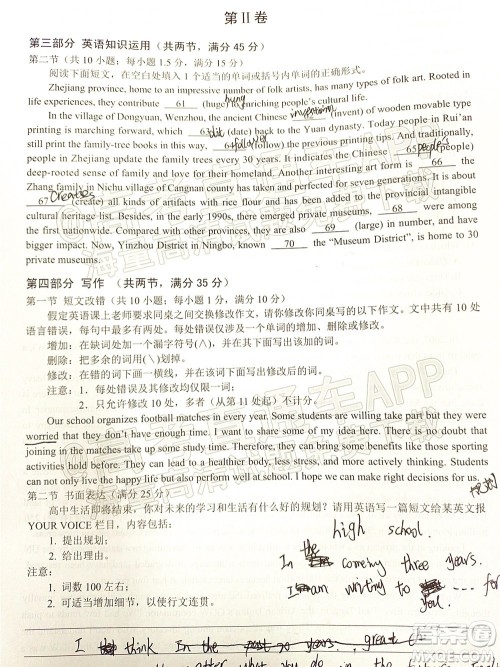 第 II 卷
第三部分 英语知识运用（共两节，满分 45 分）
第二节（共 10 小题；每小题 1.5 分，满分 15 分）
阅读下面短文，在空白处填入 1 个适当的单词或括号内单词的正确形式。
Zhejiang province, home to an impressive number of folk artists, has many types of folk art. Rooted in
life experiences, they contribute 61 (huge) enriching people's cultural life.
In the village of Dongyuan, Wenzhou, the ancient Chinese 62 (invent) of wooden movable type
printing is marching forward, which 63 (date) back to the Yuan dynasty. Today people in Rui'an
still print the family-tree books in this way, 64 (follow) the previous printing tips. And traditionally,
people in Zhejiang update the family trees every 30 years. It indicates the Chinese 65 (people)
deep-rooted sense of family and love for their homeland. Another interesting art form is 66 the
Zhang family in Nichu village of Cangnan county has taken and perfected for seven generations. It is about
67 (create) all kinds of artifacts with rice flour and has been added to the provincial intangible
cultural heritage list. Besides, in the early 1990s, there emerged private museums, 68 were among
the first nationwide. Compared with other provinces, they are also 69 (large) in number, and have
bigger impact. Now, Yinzhou District in Ningbo, known 70 the "Museum District", is home to 30
private museums.
第四部分 写作 （共两节，满分 35 分）
第一节 短文改错（共 10 小题；每小题 1 分，满分 10 分）
假定英语课上老师要求同桌之间交换修改作文，请你修改你同桌写的以下作文。文中共有 10 处
语言错误，每句中最多有两处。每处错误仅涉及一个单词的增加、删除或修改。
增加：在缺词处加一个漏字符号(∧)，并在其下面写出该加的词。
删除：把多余的词用(\)划掉。
修改：在错的词下画一横线，并在该词下面写出修改后的词。
注意：1. 每处错误及其修改均仅限一词；
2. 只允许修改 10 处，多者（从第 11 处起）不计分。
Our school organizes football matches in every year. Some students are willing take part but they were
worried that they don't have enough time. I want to share some of my idea here. There is no doubt that
joining in the matches take up some study time. Therefore, they can bring some benefits like those sporting
activities hold before. They can lead to a healthier body, less stress, and more actively thinking. Students
can not only live the happy life but also perform well at school. I hope we can make right decisions for us.
第二节 书面表达（满分 25 分）
高中生活即将结束，你对未来的学习和生活有什么好的规划？请用英语写一篇短文给某英文报
YOUR VOICE 栏目，内容包括：
1. 提出规划；
2. 给出理由。
注意：
1. 词数 100 左右；
2. 可适当增加细节，以使行文连贯。
high school.
In the coming three years.
I am writing to ... for
you.